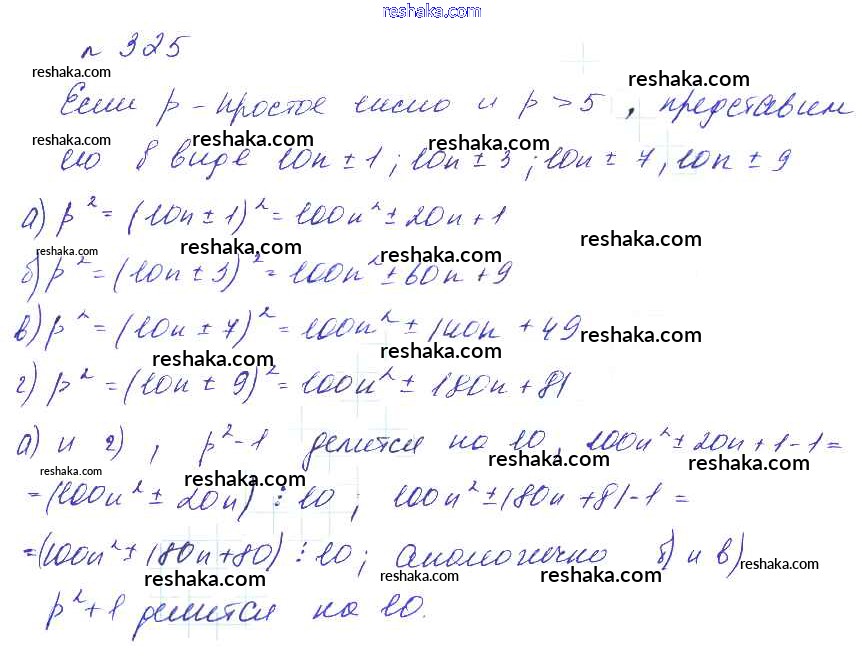 reshaka.com
n 325
reshaka.com
reshaka.com
Если p - простое число и p > 5, представим
reshaka.com reshaka.com reshaka.com
его в виде 10n ± 1; 10n ± 3; 10n ± 7, 10n ± 9
reshaka.com
а) p² = (10n ± 1)² = 100n² ± 20n + 1
reshaka.com reshaka.com reshaka.com reshaka.com
б) p² = (10n ± 3)² = 100n² ± 60n + 9
в) p² = (10n ± 7)² = 100n² ± 140n + 49
reshaka.com
reshaka.com reshaka.com
г) p² = (10n ± 9)² = 100n² ± 180n + 81
reshaka.com
а) и г), p² - 1 делится на 10, 100n² ± 20n + 1 - 1 =
reshaka.com reshaka.com reshaka.com
= (100n² ± 20n) ⋮ 10; 100n² ± 180n + 81 - 1 =
= (100n² ± 180n + 80) ⋮ 10; аналогично б) и в)
reshaka.com reshaka.com reshaka.com reshaka.com
p² + 1 делится на 10.